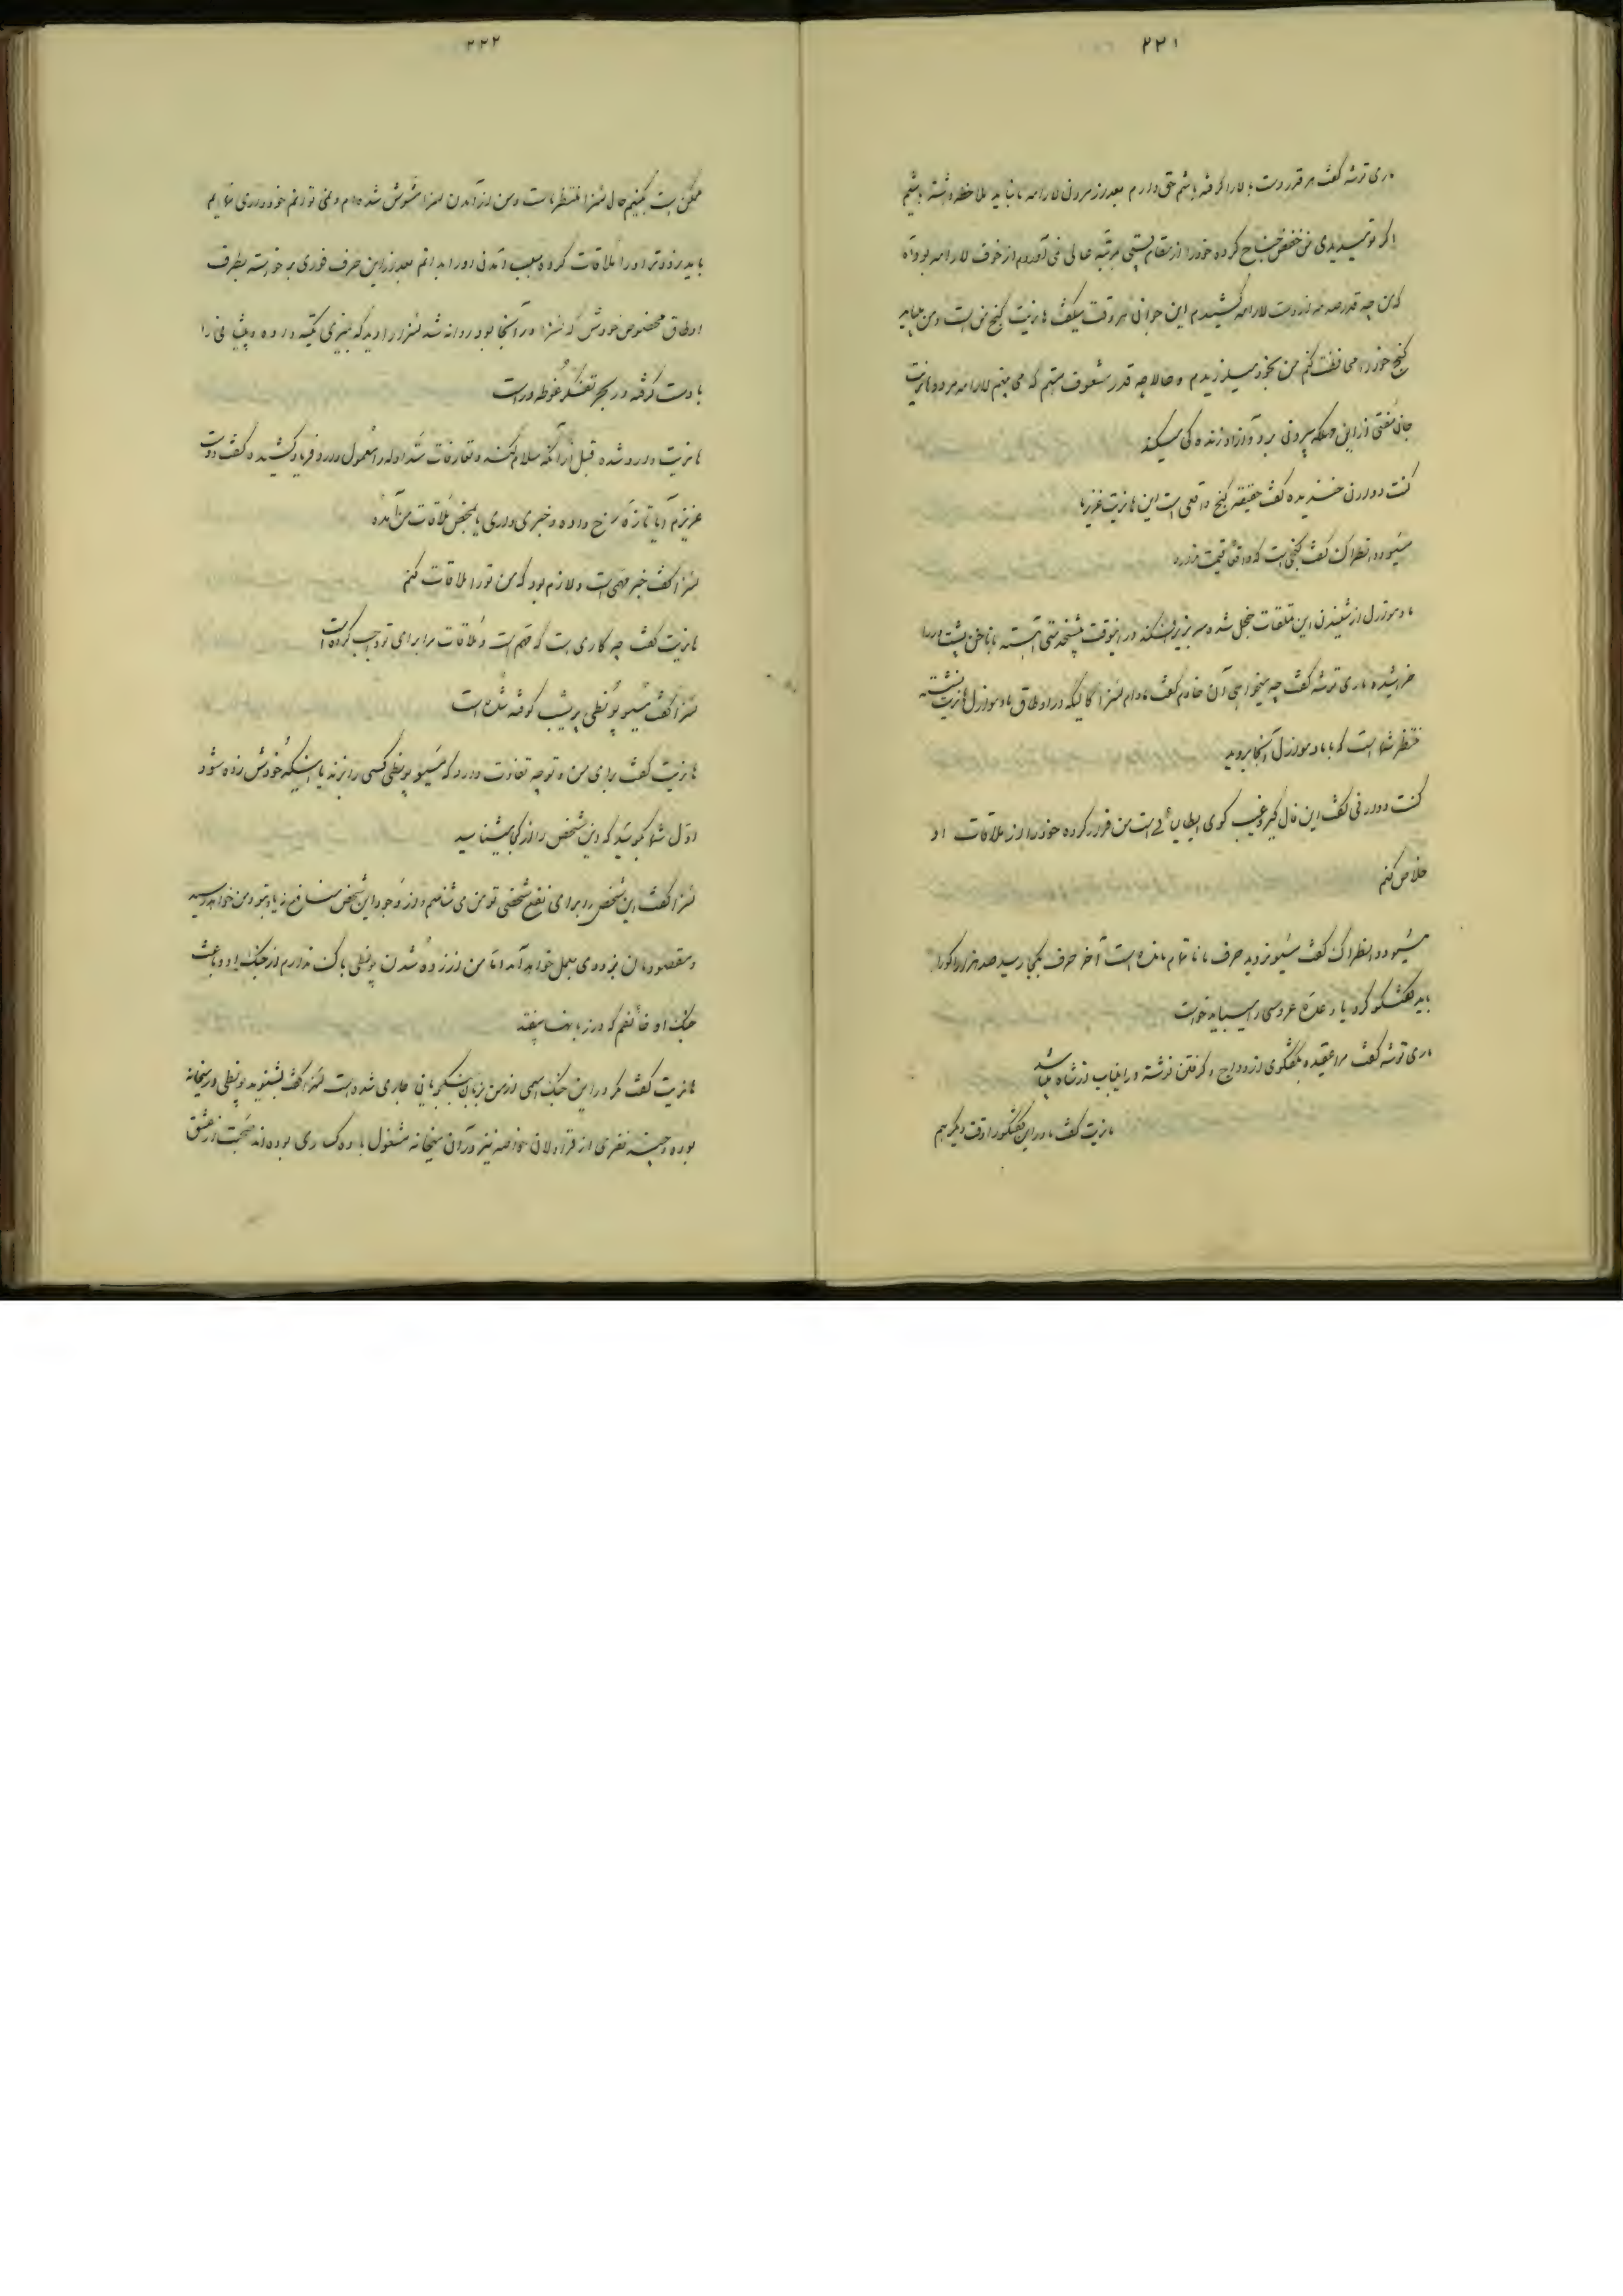 ۲۲۱
ماری توشه گفت هر قدر دست بالا را گرفته باشم حق دارم بعد از مردن لارامه ما نباید ملاحظه داشته باشیم
اگر تو میدیدی من خفض جناح کرده خود را از مقام پستی بمرتبه عالی می آوردم از خوف لارامه بود آه
که من چه قدر صدمه از دست لارامه کشیدم این جوانی هر وقت میگفت هانریت گنج من است و من باید
گنج خود را محافظت کنم من بخود میلرزیدم و حالا چه قدر مشعوف هستم که می بینم لارامه مرده هانریت
جان مفتی از این مهلکه بیرون برد و آزاد زنده گی میکند
کنت دودرن خندیده گفت حقیقة گنج واقعی است این هانریت عزیز ما
مسیو دو انطراگ گفت گنجی است که واقعا قیمت ندارد
مادموازل از شنیدن این تملقات خجل شده سر بزیر افکند در اینوقت پیشخدمتی آهسته با ناخن پشت در را
خراشیده ماری توشه گفت چه میخواهی آن خادم گفت مادام لنزا گالیگه در اوطاق مادموازل هانریت نشسته
منتظر شما است که با مادموازل آنجا بروید
کنت دودرنی گفت این فال گیر و غیب گوی ایطالیائی است من فرار کرده خود را از ملاقات او
خلاص کنم
مسیو دو انطراگ گفت مسیو نروید حرف ما ناتمام مانده است آخر حرف بکجا رسید صد هزار اکو را
باید گفتگو کرد یا وعده عروسی را میباید خواست
ماری توشه گفت مرا عقیده بگفتگوی ازدواج و گرفتن نوشته در اینباب از شاه میباشد
هانریت گفت مادر این گفتگو را وقت دیگر هم
۲۲۲
ممکن است بکنیم حال لنزا منتظر ماست و من از آمدن لنزا مشوش شده ام و نمی توانم خودداری نمایم
باید زودتر او را ملاقات کرده سبب آمدن او را بدانم بعد از این حرف فوری برخواسته بطرف
اوطاق مخصوص خودش که لنزا در آنجا بود روانه شد لنزا را دید که بمیزی تکیه داده و پیشانی را
با دست گرفته در بحر تفکر غوطه ور است
هانریت وارد شده قبل از آنکه سلام کند و تعارفات متداوله را معمول دارد فریاد کشیده گفت دوست
عزیزم آیا تازه رخ داده و خبری داری یا محض ملاقات من آمده
لنزا گفت خبر مهمی است و لازم بود که من تو را ملاقات کنم
هانریت گفت چه کاری است که مهم است و ملاقات مرا برای تو واجب کرده است
لنزا گفت مسیو پونطی پریشب کوفته شده است
هانریت گفت برای من و تو چه تفاوت دارد که مسیو پونطی کسی را بزند یا اینکه خودش زده شود
اول شما بگوئید که این شخص را از کی میشناسید
لنزا گفت این شخص را برای نفع شخصی تو من می شناسم و از وجود این شخص منافع زیاد بتو و من خواهد رسید
و مقصودمان بزودی بعمل خواهد آمد اما من از زده شدن پونطی باک ندارم از جنگ او و باعث
جنگ او خائفم که در زبانها بیفتد
هانریت گفت مگر در این جنگ اسمی از من بزبان جنگجویانی جاری شده است لنزا گفت بشنوید پونطی در میخانه
بوده و چند نفری از قراولان خاصه نیز در آن میخانه مشغول باده گساری بوده اند صحبت از عشق